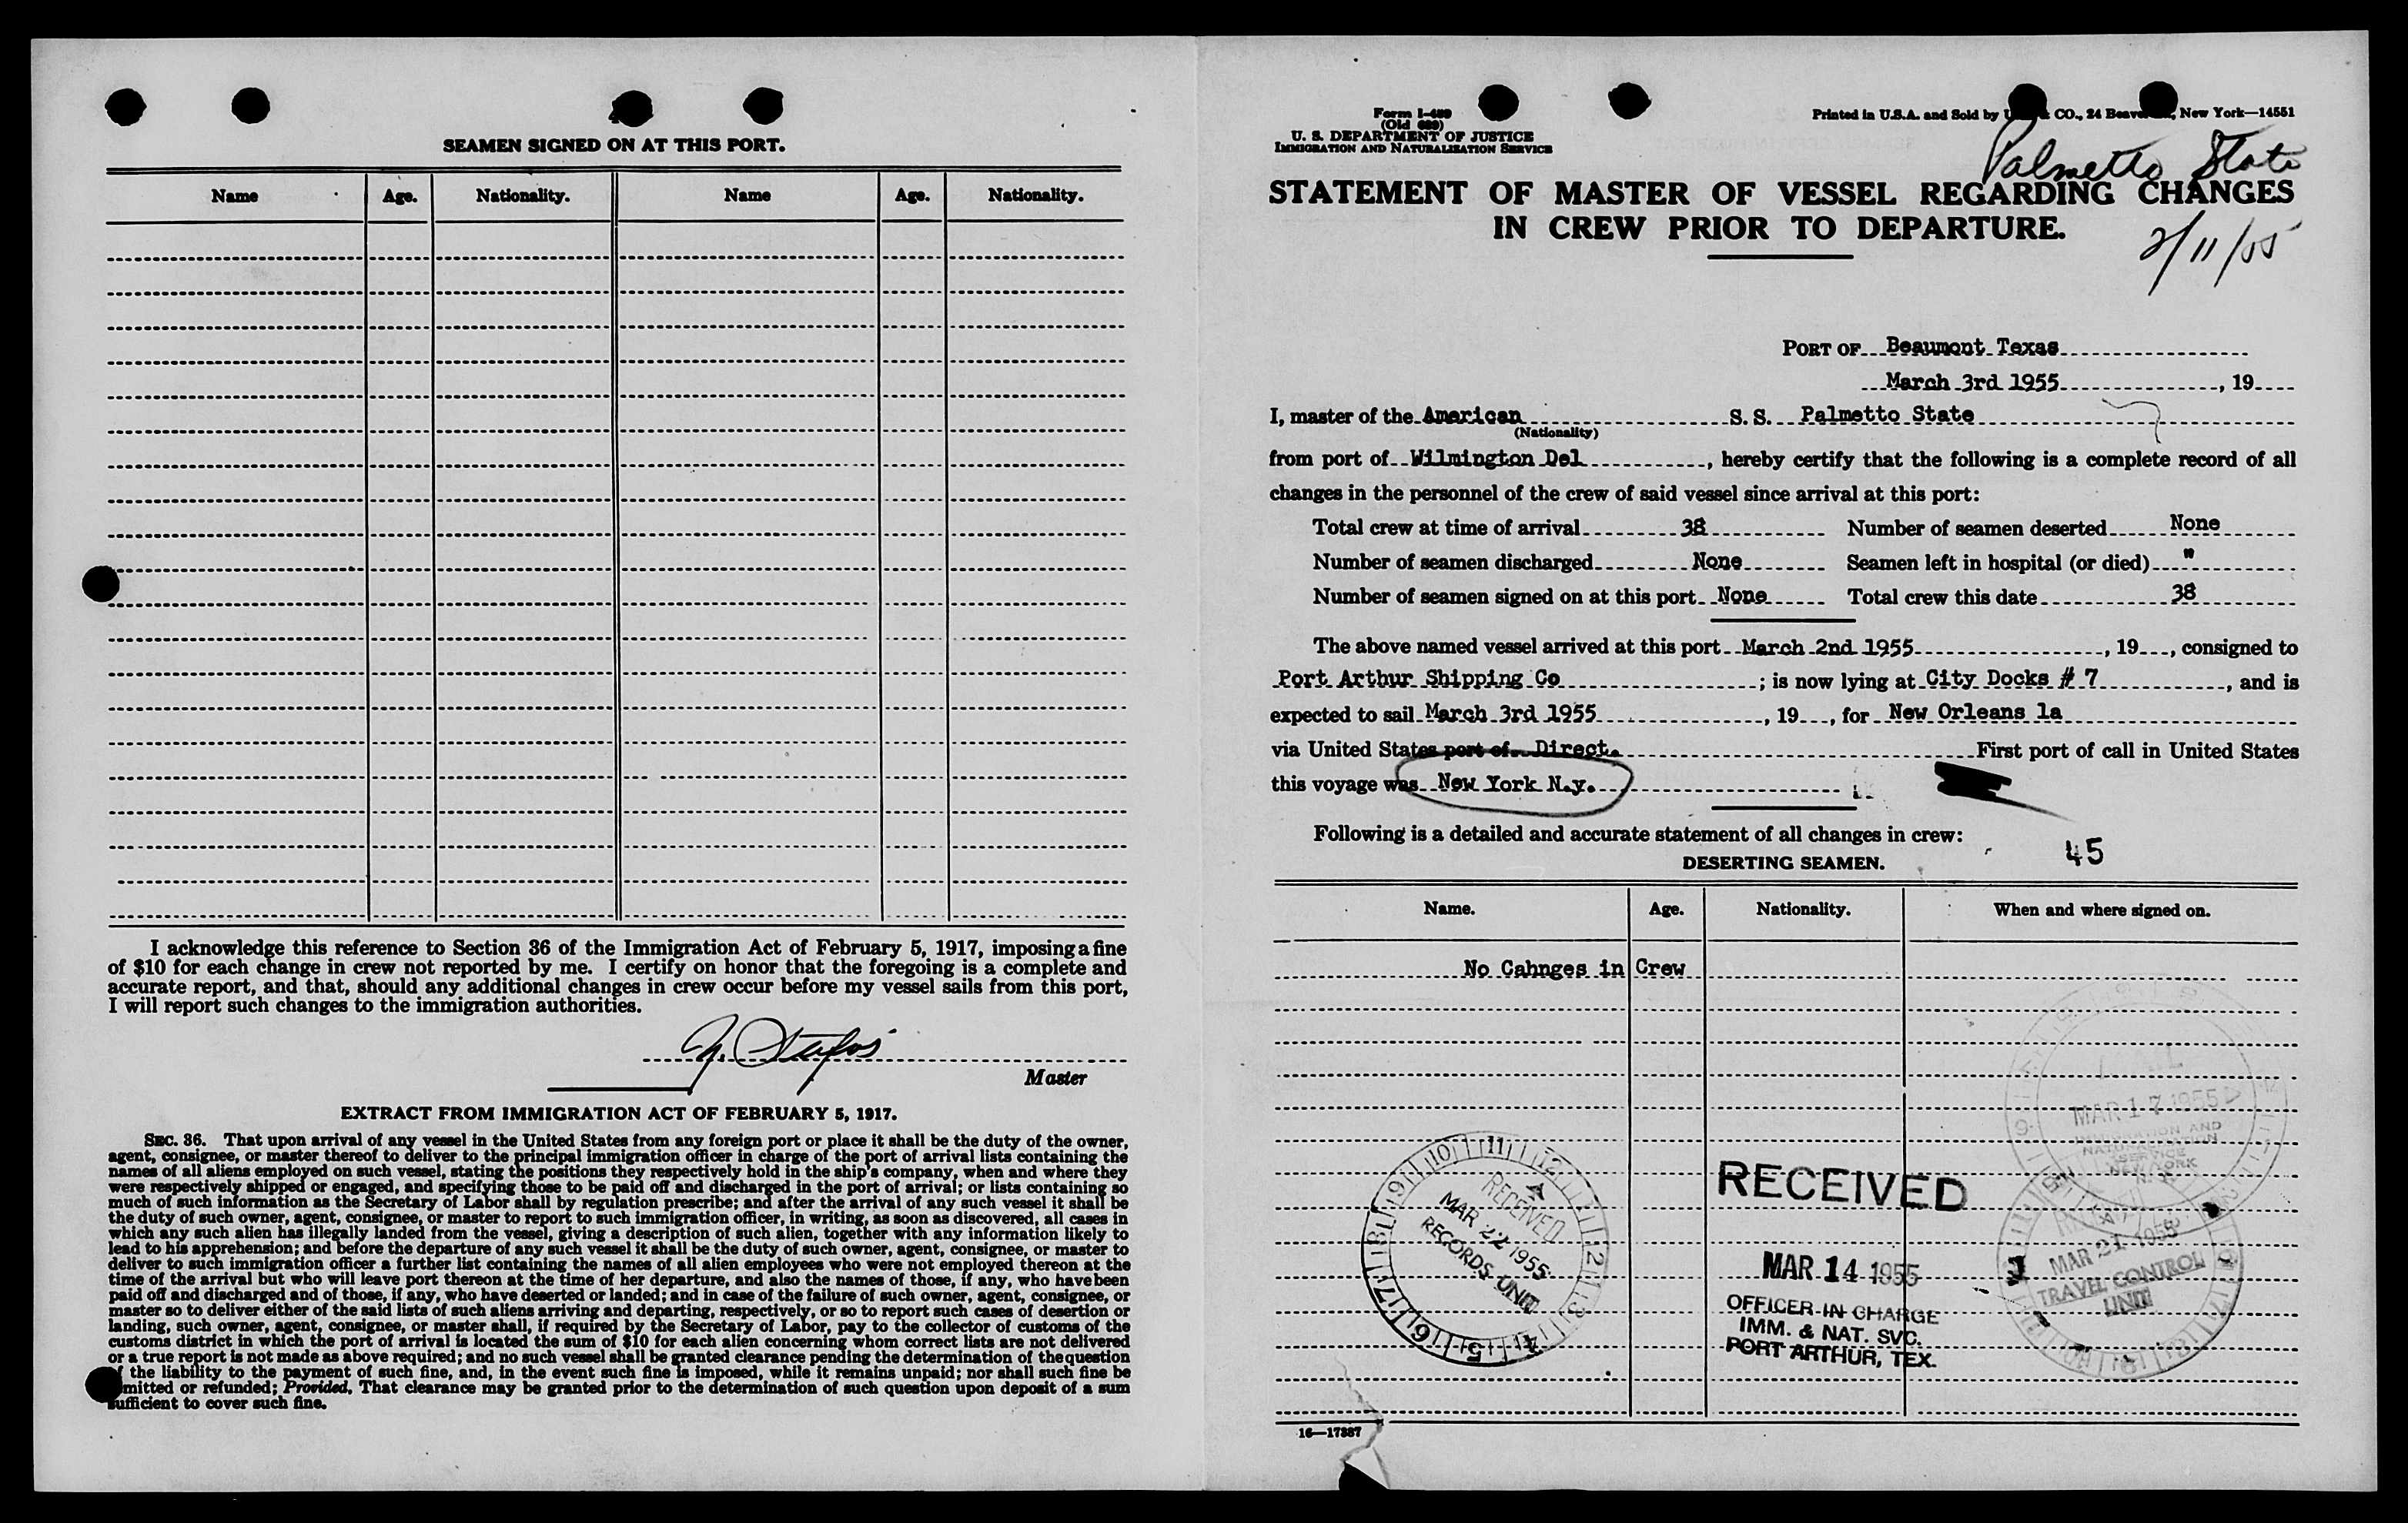 SEAMEN SIGNED ON AT THIS PORT.
Name Age. Nationality. Name Age. Nationality.
I acknowledge this reference to Section 36 of the Immigration Act of February 5, 1917, imposing a fine
of $10 for each change in crew not reported by me. I certify on honor that the foregoing is a complete and
accurate report, and that, should any additional changes in crew occur before my vessel sails from this port,
I will report such changes to the immigration authorities.
Master
EXTRACT FROM IMMIGRATION ACT OF FEBRUARY 5, 1917.
SEC. 36. That upon arrival of any vessel in the United States from any foreign port or place it shall be the duty of the owner,
agent, consignee, or master thereof to deliver to the principal immigration officer in charge of the port of arrival lists containing the
names of all aliens employed on such vessel, stating the positions they respectively hold in the ship's company, when and where they
were respectively shipped or engaged, and specifying those to be paid off and discharged in the port of arrival; or lists containing so
much of such information as the Secretary of Labor shall by regulation prescribe; and after the arrival of any such vessel it shall be
the duty of such owner, agent, consignee, or master to report to such immigration officer, in writing, as soon as discovered, all cases in
which any such alien has illegally landed from the vessel, giving a description of such alien, together with any information likely to
lead to his apprehension; and before the departure of any such vessel it shall be the duty of such owner, agent, consignee, or master to
deliver to such immigration officer a further list containing the names of all alien employees who were not employed thereon at the
time of the arrival but who will leave port thereon at the time of her departure, and also the names of those, if any, who have been
paid off and discharged and of those, if any, who have deserted or landed; and in case of the failure of such owner, agent, consignee, or
master so to deliver either of the said lists of such aliens arriving and departing, respectively, or so to report such cases of desertion or
landing, such owner, agent, consignee, or master shall, if required by the Secretary of Labor, pay to the collector of customs of the
customs district in which the port of arrival is located the sum of $10 for each alien concerning whom correct lists are not delivered
or a true report is not made as above required; and no such vessel shall be granted clearance pending the determination of the question
of the liability to the payment of such fine, and, in the event such fine is imposed, while it remains unpaid; nor shall such fine be
mitted or refunded; Provided, That clearance may be granted prior to the determination of such question upon deposit of a sum
sufficient to cover such fine.
Form I-489
(Old 689)
U. S. DEPARTMENT OF JUSTICE
IMMIGRATION AND NATURALIZATION SERVICE
Printed in U.S.A. and Sold by CO., 24 Beaver New York—14551
Palmetto State
STATEMENT OF MASTER OF VESSEL REGARDING CHANGES
IN CREW PRIOR TO DEPARTURE.
2/11/55
PORT OF Beaumont Texas
March 3rd 1955, 19
I, master of the American S. S. Palmetto State
(Nationality)
from port of Wilmington Del, hereby certify that the following is a complete record of all
changes in the personnel of the crew of said vessel since arrival at this port:
Total crew at time of arrival 38 Number of seamen deserted None
Number of seamen discharged None Seamen left in hospital (or died) "
Number of seamen signed on at this port None Total crew this date 38
The above named vessel arrived at this port March 2nd 1955, 19, consigned to
Port Arthur Shipping Co; is now lying at City Docks # 7, and is
expected to sail March 3rd 1955, 19, for New Orleans la
via United States port of Direct. First port of call in United States
this voyage was New York N.y.
Following is a detailed and accurate statement of all changes in crew:
45
DESERTING SEAMEN.
Name. Age. Nationality. When and where signed on.
No Cahnges in Crew
MAIL
MAR 17 1955
IMMIGRATION AND
NATURALIZATION
SERVICE
NEW YORK
N. Y.
RECEIVED
MAR 22 1955
RECORDS UNIT
RECEIVED
MAR 14 1955
OFFICER IN CHARGE
IMM. & NAT. SVC.
PORT ARTHUR, TEX.
MAR 21 1955
TRAVEL CONTROL
UNIT
16—17387